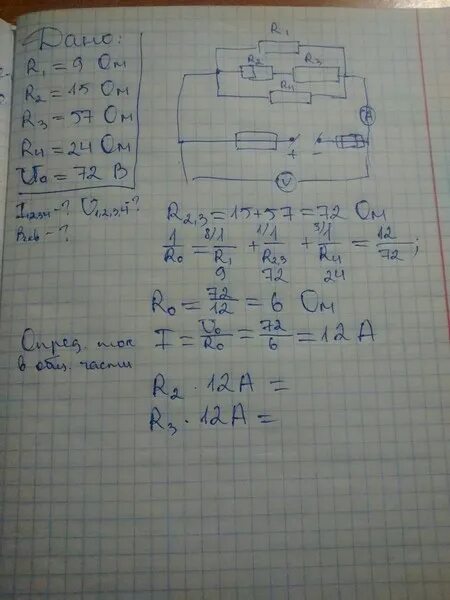 Дано:
R1 = 9 Ом
R2 = 15 Ом
R3 = 57 Ом
R4 = 24 Ом
U0 = 72 В
I1,2,3,4-? U1,2,3,4-?
Rэкв-?
R1
R2
R3
R4
A
+ -
V
R2,3 = 15+57 = 72 Ом
1/R0 = 8/1/R1 + 1/1/R2,3 + 3/1/R4 = 12/72;
9 72 24
R0 = 72/12 = 6 Ом
Опред. ток
в общ. части
I = U0/R0 = 72/6 = 12 А
R2 · 12А =
R3 · 12А =